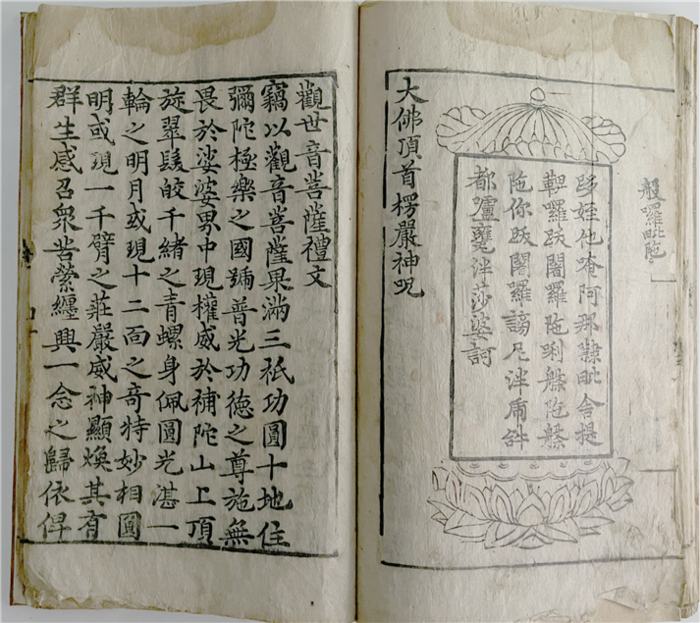 般羅毗陁
跢姪他唵阿那隸毗舍提
鞞囉跋闍羅陁唎槃陁槃
陁你跋闍羅謗尼泮乕𤙖
都嚧甕泮莎婆訶
大佛頂首楞嚴神呪
觀世音菩薩禮文
竊以觀音菩薩果滿三祇功圓十地住
彌陀極樂之國號普光功德之尊施無
畏於娑婆界中現權威於補陀山上頂
旋翠髮皎千緖之青螺身佩圓光湛一
輪之明月或現十二面之奇特妙相圓
明或現一千臂之莊嚴威神顯煥其有
群生感召衆苦縈纏興一念之歸依俾